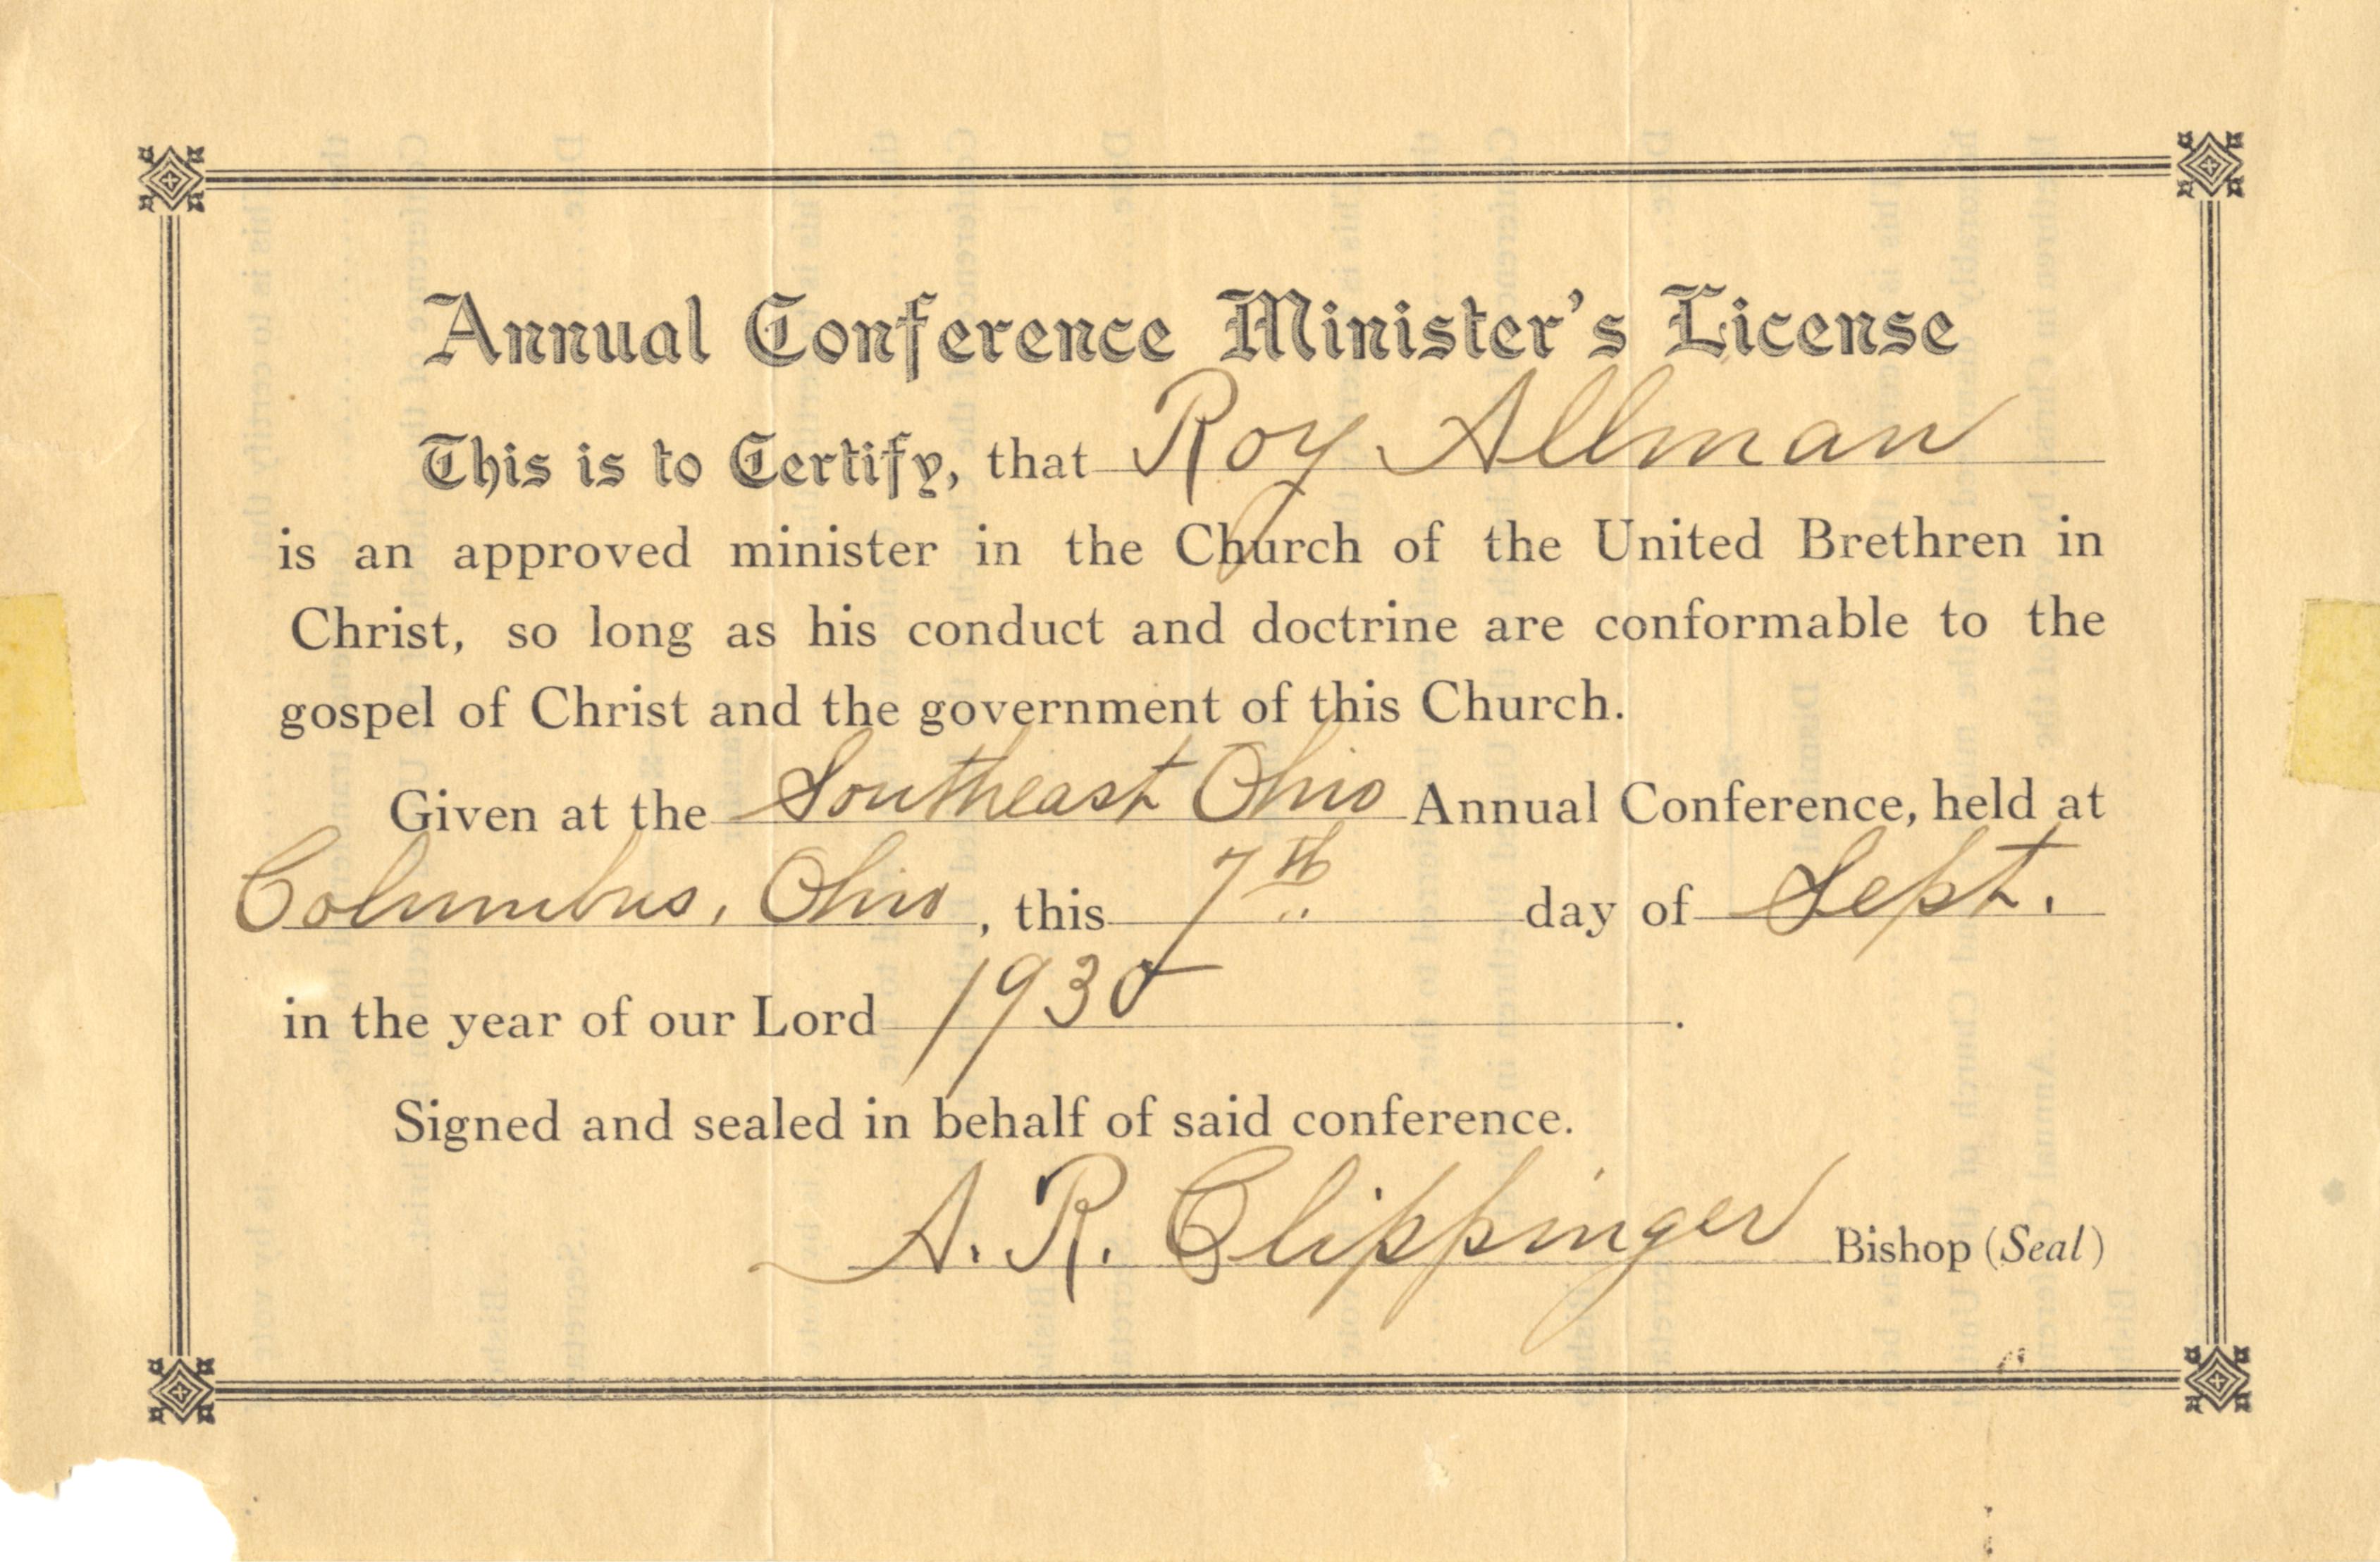 Annual Conference Minister's License
This is to Certify, that Roy Allman
is an approved minister in the Church of the United Brethren in
Christ, so long as his conduct and doctrine are conformable to the
gospel of Christ and the government of this Church.
Given at the Southeast Ohio Annual Conference, held at
Columbus, Ohio, this 7th day of Sept.
in the year of our Lord 1930.
Signed and sealed in behalf of said conference.
A. R. Clippinger Bishop (Seal)